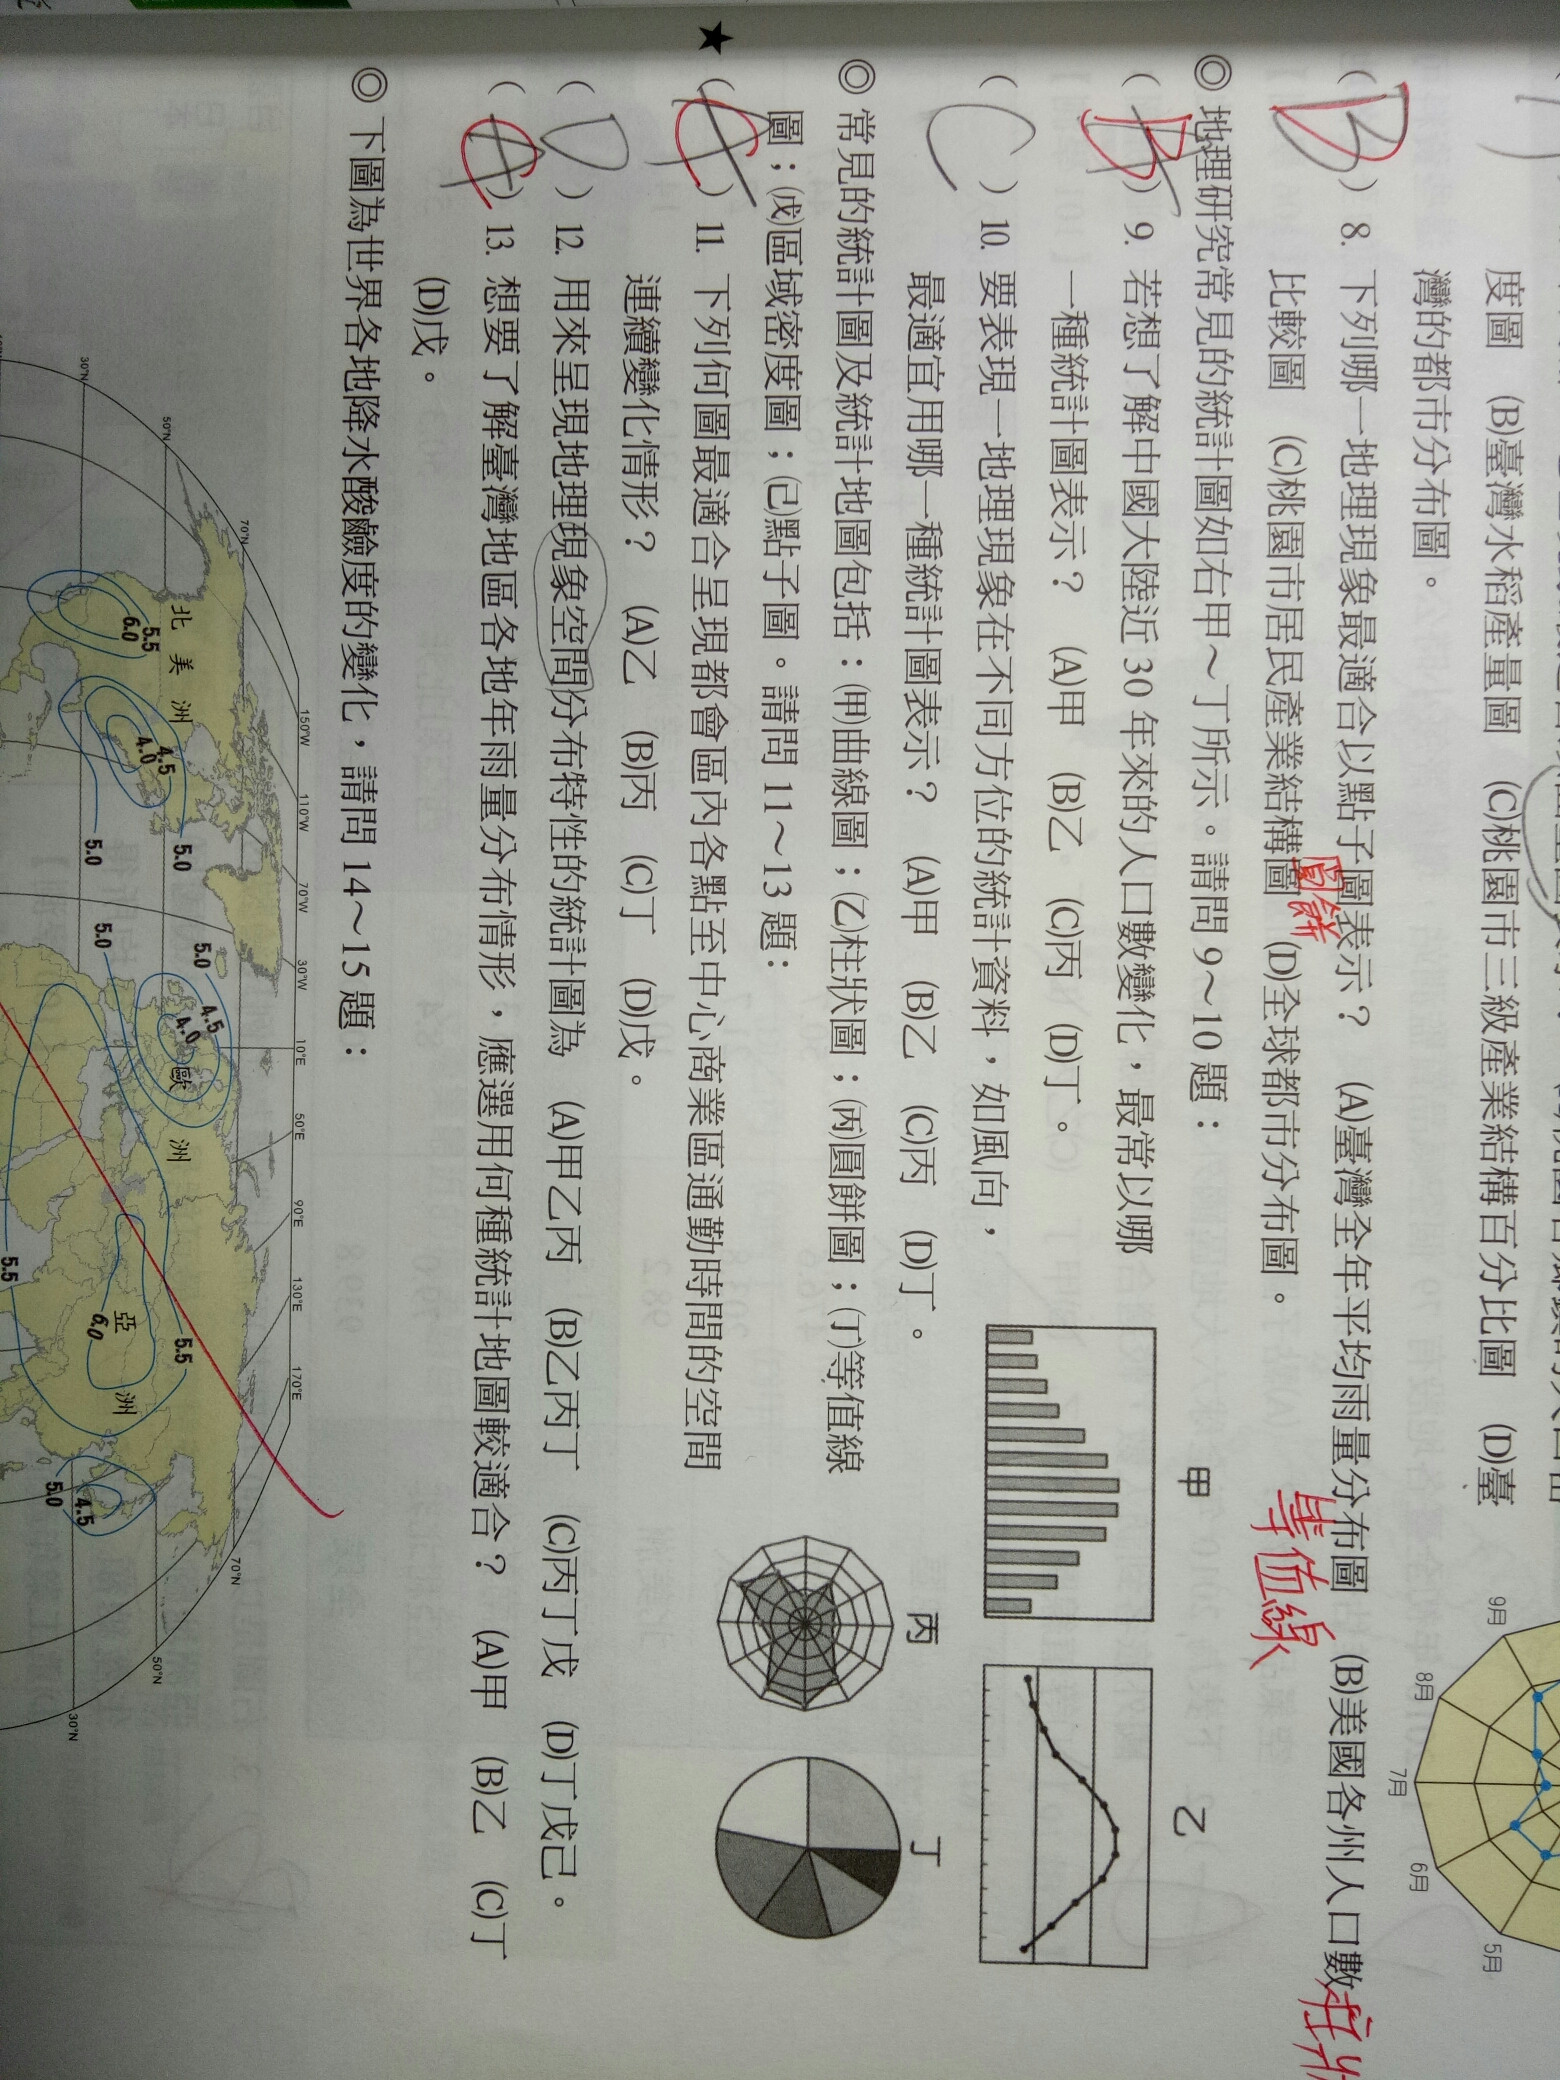 度圖 (B)臺灣水稻產量圖 (C)桃園市三級產業結構百分比圖 (D)臺
灣的都市分布圖。
( B ) 8. 下列哪一地理現象最適合以點子圖表示? (A)臺灣全年平均雨量分布圖 (B)美國各州人口數
比較圖 (C)桃園市居民產業結構圖 (D)全球都市分布圖。
圓餅
等值線
柱狀
◎ 地理研究常見的統計圖如右甲~丁所示。請問 9~10 題:
( B ) 9. 若想了解中國大陸近 30 年來的人口數變化,最常以哪
一種統計圖表示? (A)甲 (B)乙 (C)丙 (D)丁。
( C ) 10. 要表現一地理現象在不同方位的統計資料,如風向,
最適宜用哪一種統計圖表示? (A)甲 (B)乙 (C)丙 (D)丁。
甲
乙
丙
丁
9月
8月
7月
6月
5月
◎ 常見的統計圖及統計地圖包括:(甲)曲線圖;(乙)柱狀圖;(丙)圓餅圖;(丁)等值線
圖;(戊)區域密度圖;(己)點子圖。請問 11~13 題:
★ ( C ) 11. 下列何圖最適合呈現都會區內各點至中心商業區通勤時間的空間
連續變化情形? (A)乙 (B)丙 (C)丁 (D)戊。
( D ) 12. 用來呈現地理現象空間分布特性的統計圖為 (A)甲乙丙 (B)乙丙丁 (C)丙丁戊 (D)丁戊己。
( C ) 13. 想要了解臺灣地區各地年雨量分布情形,應選用何種統計地圖較適合? (A)甲 (B)乙 (C)丁
(D)戊。
◎ 下圖為世界各地降水酸鹼度的變化,請問 14~15 題:
150°W 110°W 70°W 30°W 10°E 50°E 90°E 130°E 170°E
70°N
70°N
50°N
50°N
30°N
30°N
北美洲
歐洲
亞洲
5.5
6.0
4.5
4.0
5.0
5.0
5.0
5.0
4.5
4.0
5.5
6.0
5.5
4.5
5.0